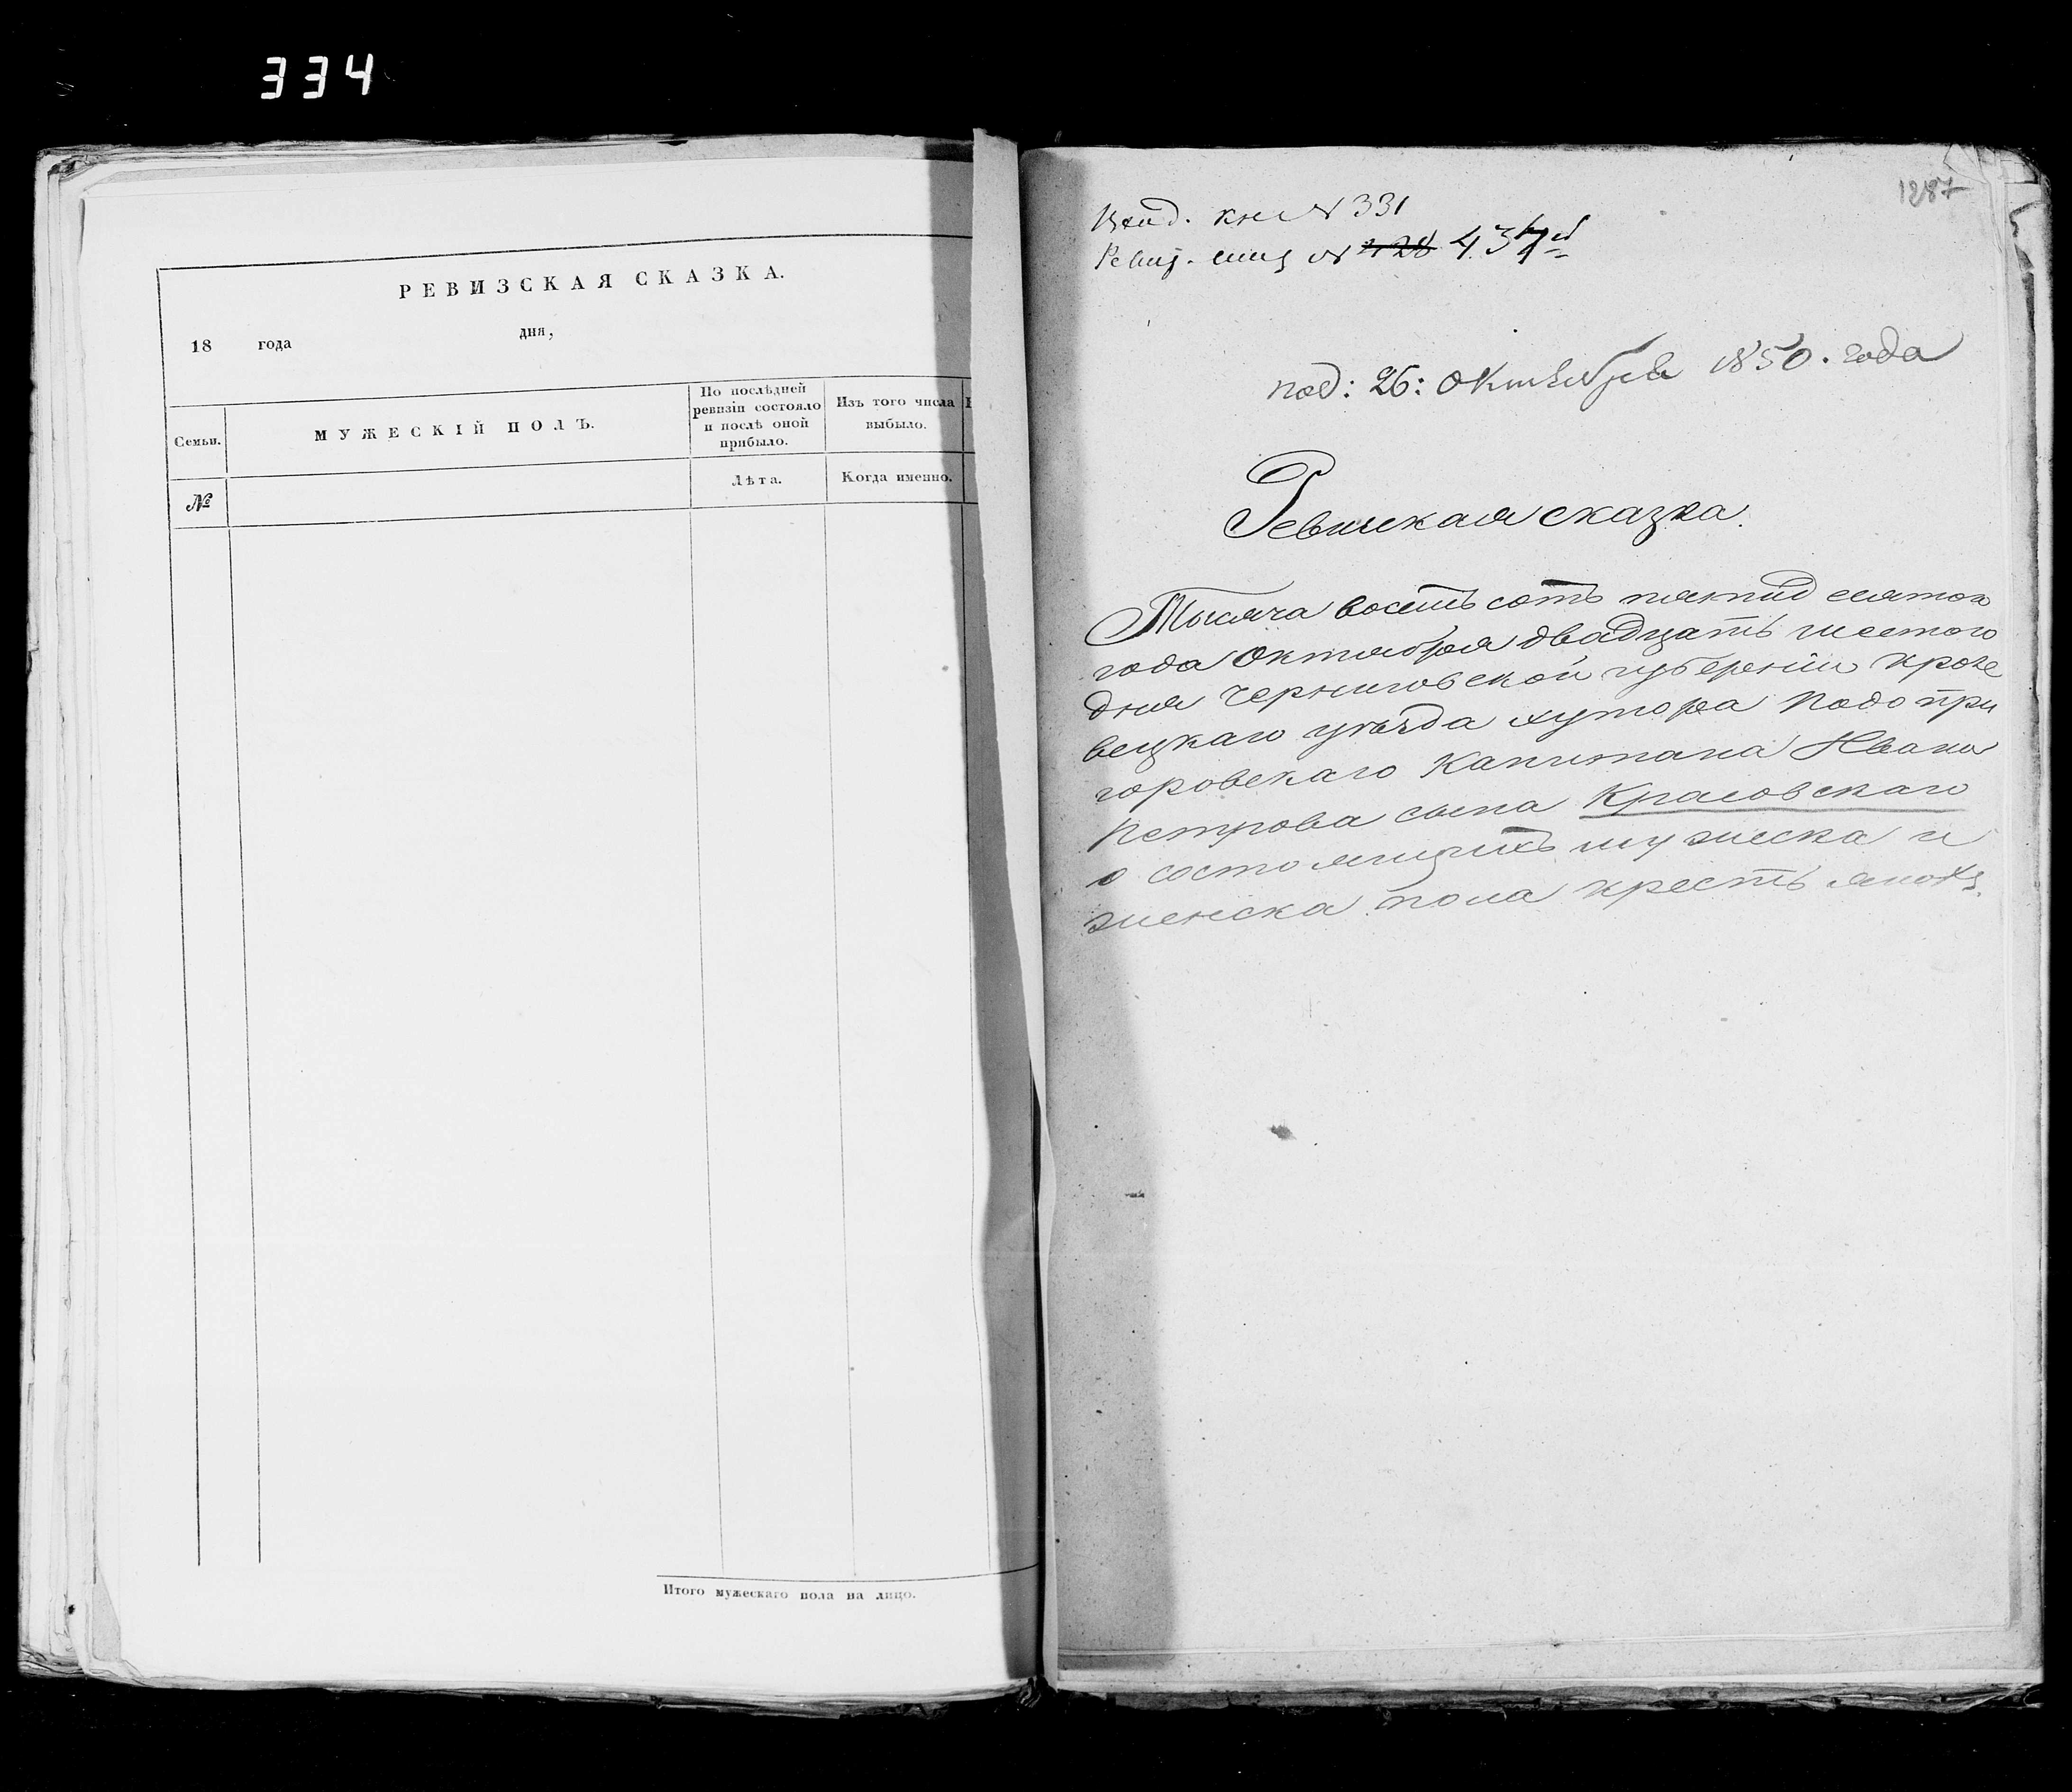 334
РЕВИЗСКАЯ СКАЗКА.
18 года дня,
Семьи.
МУЖЕСКІЙ ПОЛЪ.
По послѣдней
ревизіи состояло
и послѣ оной
прибыло.
Изъ того числа
выбыло.
№
Лѣта.
Когда именно.
Итого мужескаго пола на лицо.
1287
кн № 331
Ревиз. № 428 437
под: 26: октября 1850. года
Ревиская сказка.
Тысяча восемь сотъ пятид есятого
года Октября двадцать шестого
дня Черниговской губерніи Кроле
вецкаго уѣзда хутора Подо при
горовскаго Капитана Ивана
Петрова сына Красовскаго
о состоящихъ мужеска и
женска пола крестьянахъ.